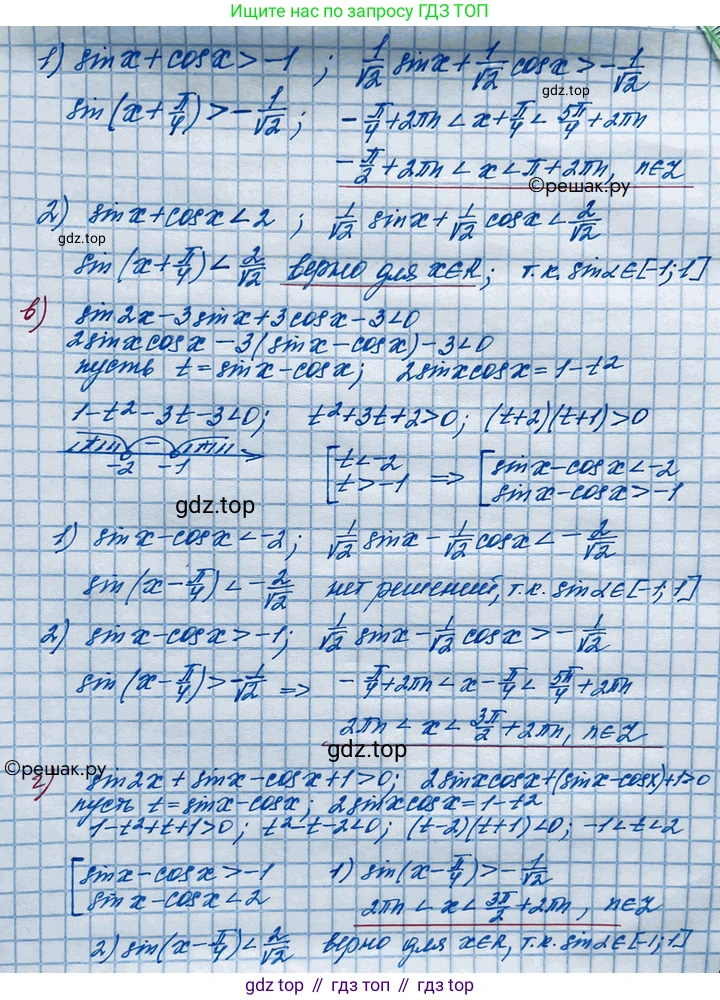 Ищите нас по запросу ГДЗ ТОП
1) sinx + cosx > -1 ; 1/√2 sinx + 1/√2 cosx > -1/√2
gdz.top
sin(x + π/4) > -1/√2 ; -π/4 + 2πn < x + π/4 < 5π/4 + 2πn
-π/2 + 2πn < x < π + 2πn, n∈Z
©решак.ру
2) sinx + cosx < 2 ; 1/√2 sinx + 1/√2 cosx < 2/√2
gdz.top
sin(x + π/4) < 2/√2 верно для x∈R; т.к. sinα∈[-1;1]
в) sin2x - 3sinx + 3cosx - 3 < 0
2sinxcosx - 3(sinx - cosx) - 3 < 0
пусть t = sinx - cosx; 2sinxcosx = 1 - t²
1 - t² - 3t - 3 < 0; t² + 3t + 2 > 0; (t+2)(t+1) > 0
+ - +
-2 -1
[ t < -2 t > -1 => [ sinx - cosx < -2 sinx - cosx > -1
gdz.top
1) sinx - cosx < -2; 1/√2 sinx - 1/√2 cosx < -2/√2
sin(x - π/4) < -2/√2 нет решений, т.к. sinα∈[-1;1]
2) sinx - cosx > -1; 1/√2 sinx - 1/√2 cosx > -1/√2
sin(x - π/4) > -1/√2 => -π/4 + 2πn < x - π/4 < 5π/4 + 2πn
2πn < x < 3π/2 + 2πn, n∈Z
gdz.top
©решак.ру
г) sin2x + sinx - cosx + 1 > 0; 2sinxcosx + (sinx - cosx) + 1 > 0
пусть t = sinx - cosx; 2sinxcosx = 1 - t²
1 - t² + t + 1 > 0; t² - t - 2 < 0; (t-2)(t+1) < 0; -1 < t < 2
[ sinx - cosx > -1 1) sin(x - π/4) > -1/√2
sinx - cosx < 2 2πn < x < 3π/2 + 2πn, n∈Z
2) sin(x - π/4) < 2/√2 верно для x∈R, т.к. sinα∈[-1;1]
gdz.top // gdz.top // gdz.top // gdz.top // gdz.top